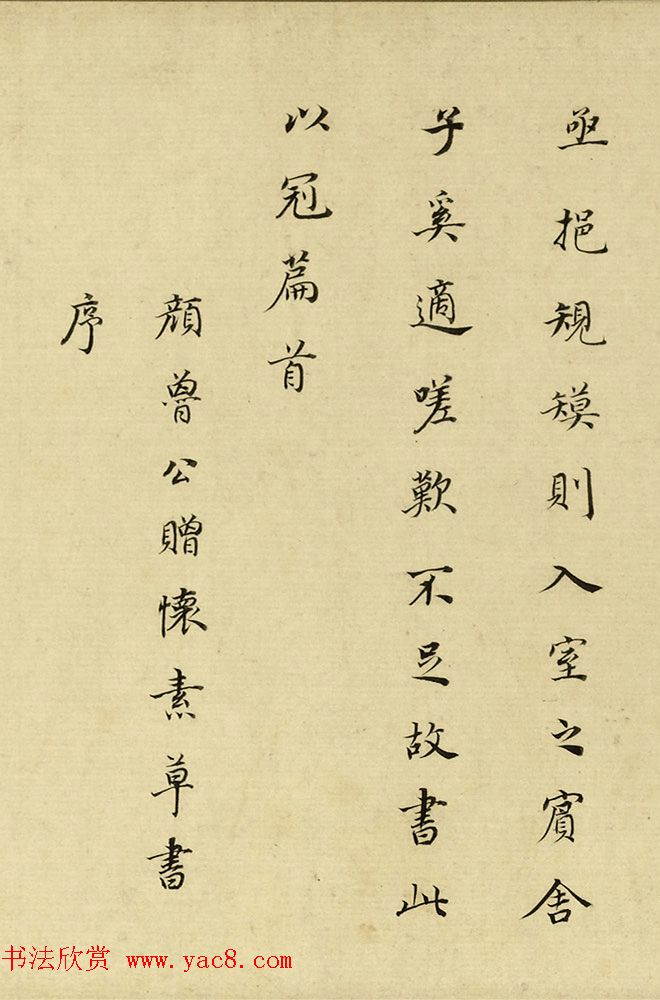 亟挹規䂓則入室之賓舍
子奚適嗟歎不足故書此
以冠篇首
顔魯公贈懷素草書
序
书法欣赏 www.yac8.com